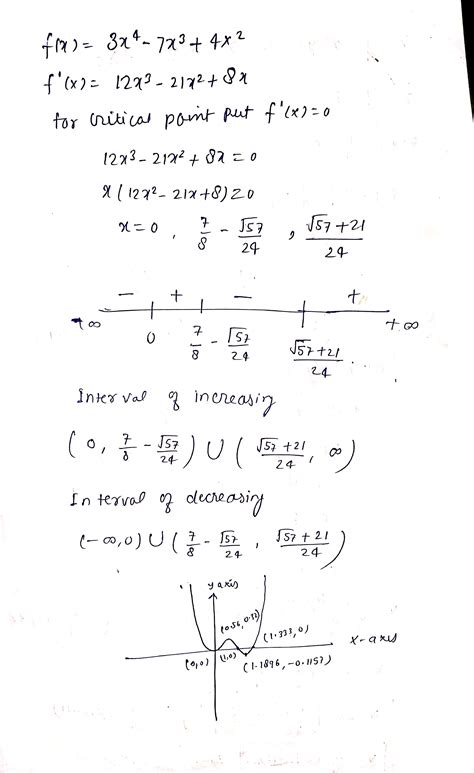 f(x) = 3x⁴ - 7x³ + 4x²
f'(x) = 12x³ - 21x² + 8x
for critical point put f'(x) = 0
12x³ - 21x² + 8x = 0
x (12x² - 21x + 8) = 0
x = 0 , 7/8 - √57/24 , √57 + 21/24
- + - +
-∞ 0 7/8 - √57/24 √57 + 21/24 +∞
Interval of increasing
(0, 7/8 - √57/24) ∪ (√57 + 21/24, ∞)
Interval of decreasing
(-∞, 0) ∪ (7/8 - √57/24, √57 + 21/24)
y axis
(0.56, 0.33)
(1.333, 0)
x-axis
(0,0) (1,0) (1.1896, -0.1157)